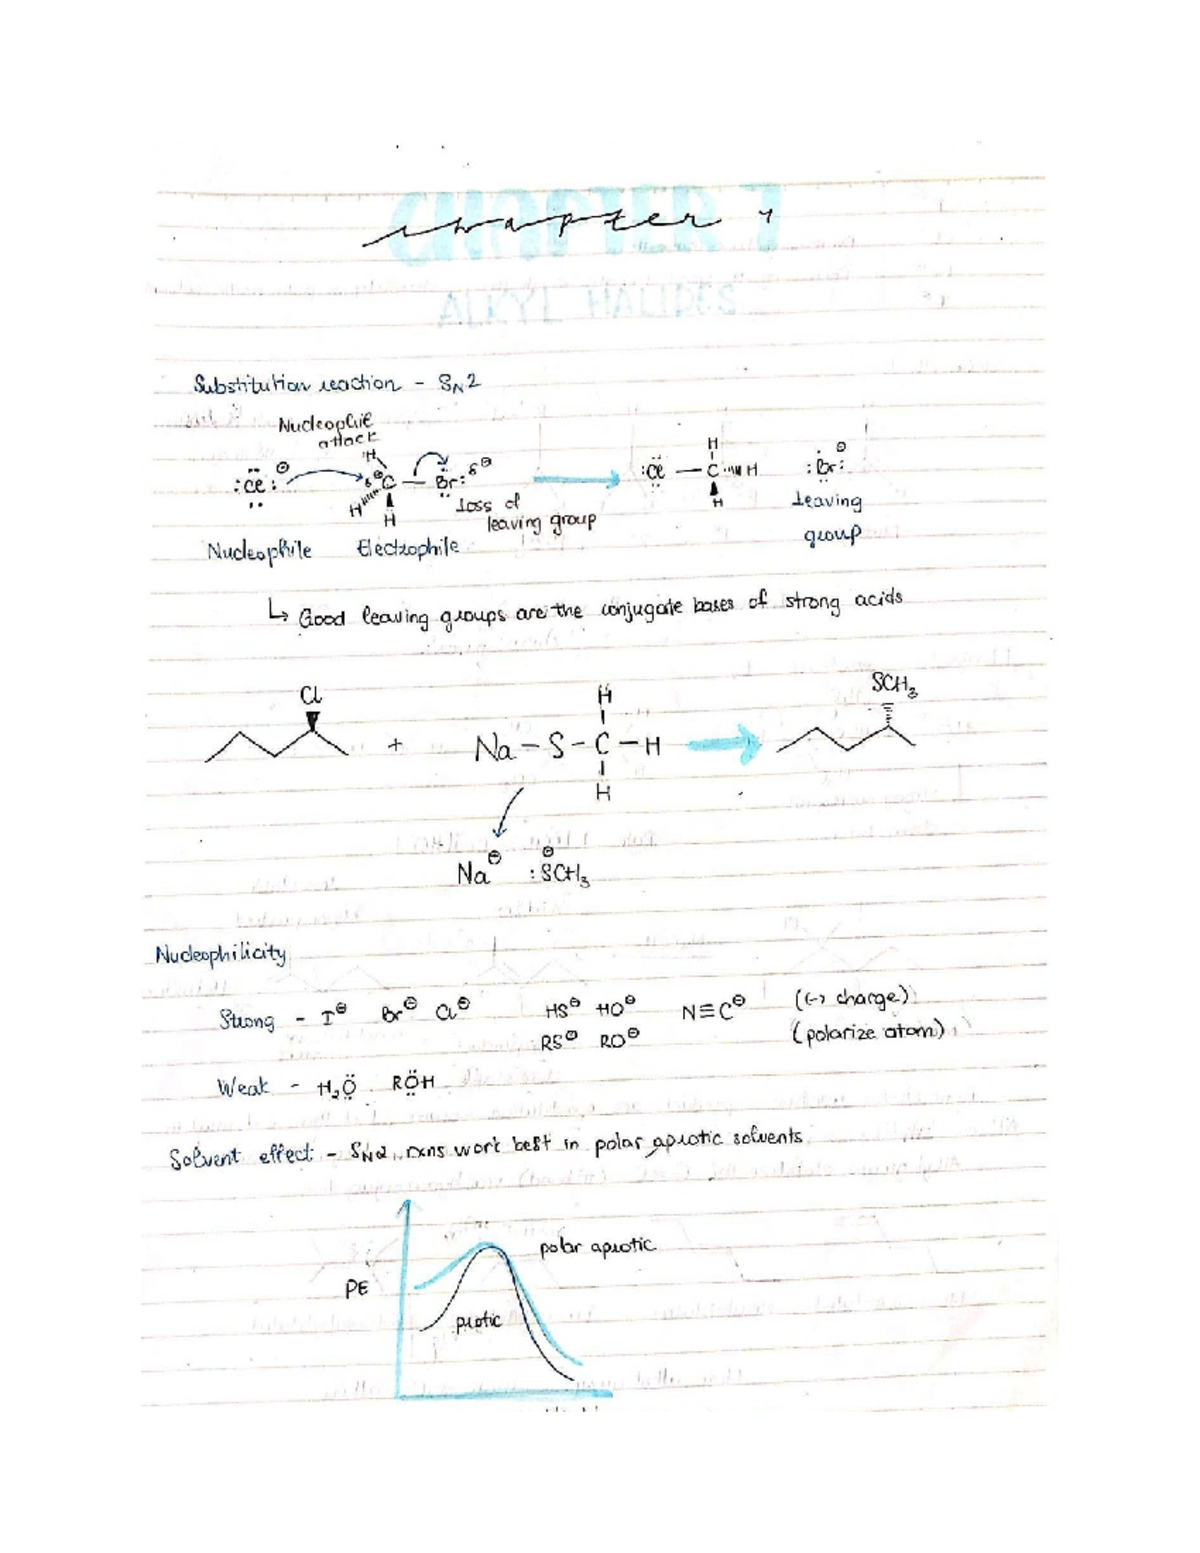 CHAPTER 7
chapter 7
ALKYL HALIDES
Substitution reaction - SN2
Nucleophile
attack
:Cl: ⊖ H H H C δ⊕ Br: δ⊖ :Cl — C H H H :Br: ⊖
Loss of
leaving group
Leaving
group
Nucleophile Electrophile
↳ Good leaving groups are the conjugate bases of strong acids
Cl H SCH₃
+ Na-S-C-H
H
Na⊖ :SCH₃ ⊖
Nucleophilicity
Strong - I⊖ Br⊖ Cl⊖ HS⊖ HO⊖ N≡C⊖ ((-) charge)
RS⊖ RO⊖ (polarize atom)
Weak - H₂Ö ROH
Solvent effect - SN2 rxns work best in polar aprotic solvents
polar aprotic
PE
protic